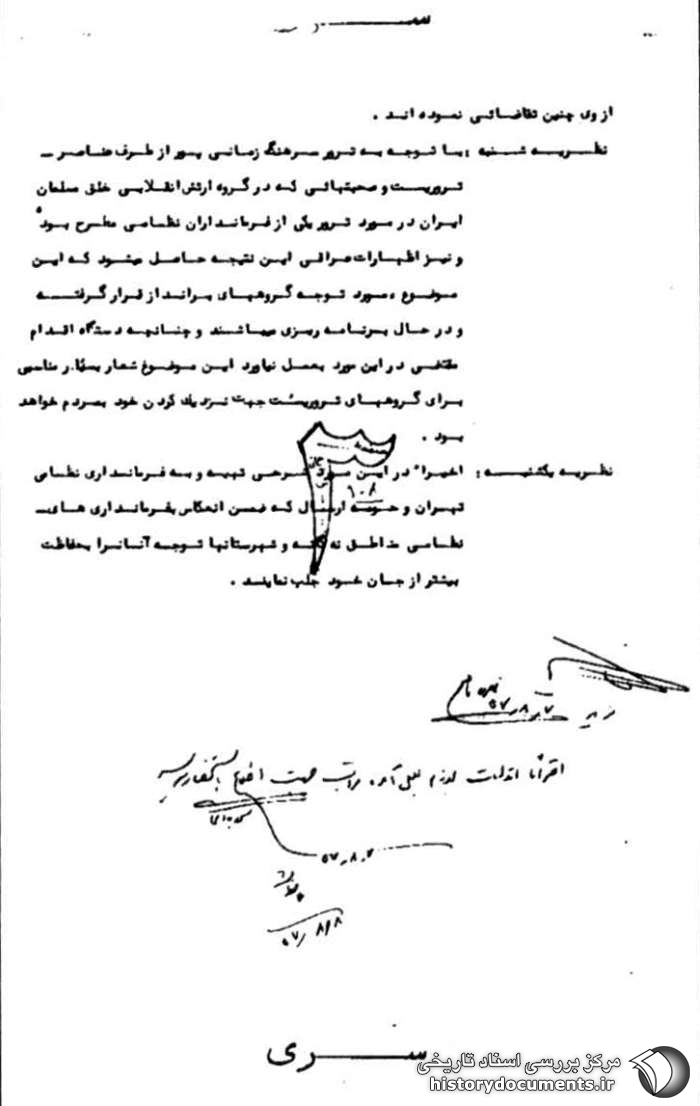 ســـــری
از وی چنین تقاضائی نموده اند .
نظریـــه شـــنبه : بـا توجـه بـه ترور سـرهنگ زمانی پـور از طرف عناصر ـ
تروریست و صحبتهائی که در گروه ارتش انقلابی خلق مسلمان
ایران در مورد ترور یکی از فرمانداران نظامی مطرح بود
و نیز اظهارات عراقی این نتیجه حاصل میشود که این
موضوع ، مورد توجه گروههای برانداز قرار گرفتـــه
و در حال برنامه ریزی میباشند و چنانچه دستگاه اقدام
مقتضی در این مورد بعمل نیاورد این موضوع شعار بسیار مناسبی
برای گروههای تروریست جهت نزدیك کردن خود بمردم خواهد
بود .
نظریه یکشنبـــه : اخیرا" در این مورد شرحی تهیه و به فرمانداری نظامی
تهران و حومه ارسال که ضمن انعکاس بفرمانداری های ـ
نظامی مناطق نه گانه و شهرستانها توجه آنانرا بحفاظت
بیشتر از جان خود جلب نمایند .
۳
۱۰۸
۵۷-۸-۷
مراتب جهت
۵۷-۸-۷
۵۷/۸/۸
ســـــری
مرکز بررسی اسناد تاریخی
historydocuments.ir